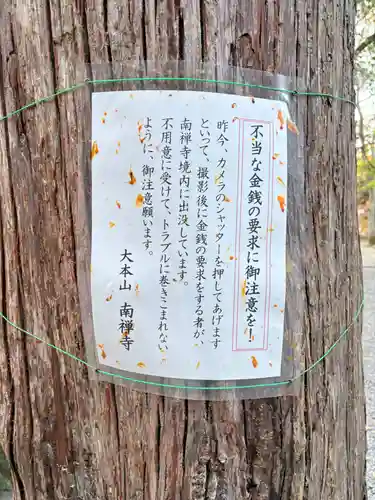 不当な金銭の要求に御注意を！
昨今、カメラのシャッターを押してあげます
といって、撮影後に金銭の要求をする者が、
南禅寺境内に出没しています。
不用意に受けて、トラブルに巻きこまれない
ように、御注意願います。
大本山　南禅寺